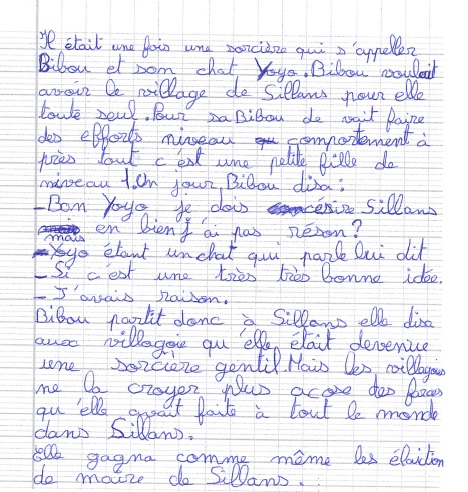 Il était une fois une sorcière qui s'appeller
Bibou et son chat Yoyo. Bibou voulait
avoir le village de Sillans pour elle
toute seul. Pour sa Bibou de vait faire
des efforts niveau comportement à
près tout c'est une petite fille de
niveau 1. Un jour, Bibou disa :
- Bon Yoyo je dois Sillans
mais en bien j'ai pas réson ?
- Yoyo étant un chat qui parle lui dit
- Si c'est une très très bonne idée.
- J'avais raison.
Bibou partit donc à Sillans elle disa
aux villagoie qu'elle était devenue
une sorcière gentil. Mais les villagois
ne la croyer plus acose des farces
qu'elle avait faite à tout le monde
dans Sillans.
Elle gagna comme même les élection
de maire de Sillans.